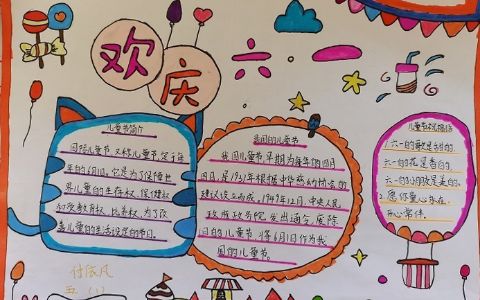 欢庆六一
儿童节简介
国际儿童节又称儿童节定于每
年的6月1日。它是为了保障世
界儿童的生存权、保健权
和受教育权、抚养权、为了改
善儿童的生活设定的节日。
我国的儿童节
我国儿童节早期为每年的四月
四日,是1931年根据中华慈幼协会的
建议设立而成,1949年12月,中央人民
政府政务院发出通令废除
旧的儿童节将6月1日作为我
国的儿童节。
儿童节祝福语
1.六一的歌是甜的.
六一的花是香的.
六一的小朋友是美的.
2.愿你童心永在.
开心常伴.
五(1)